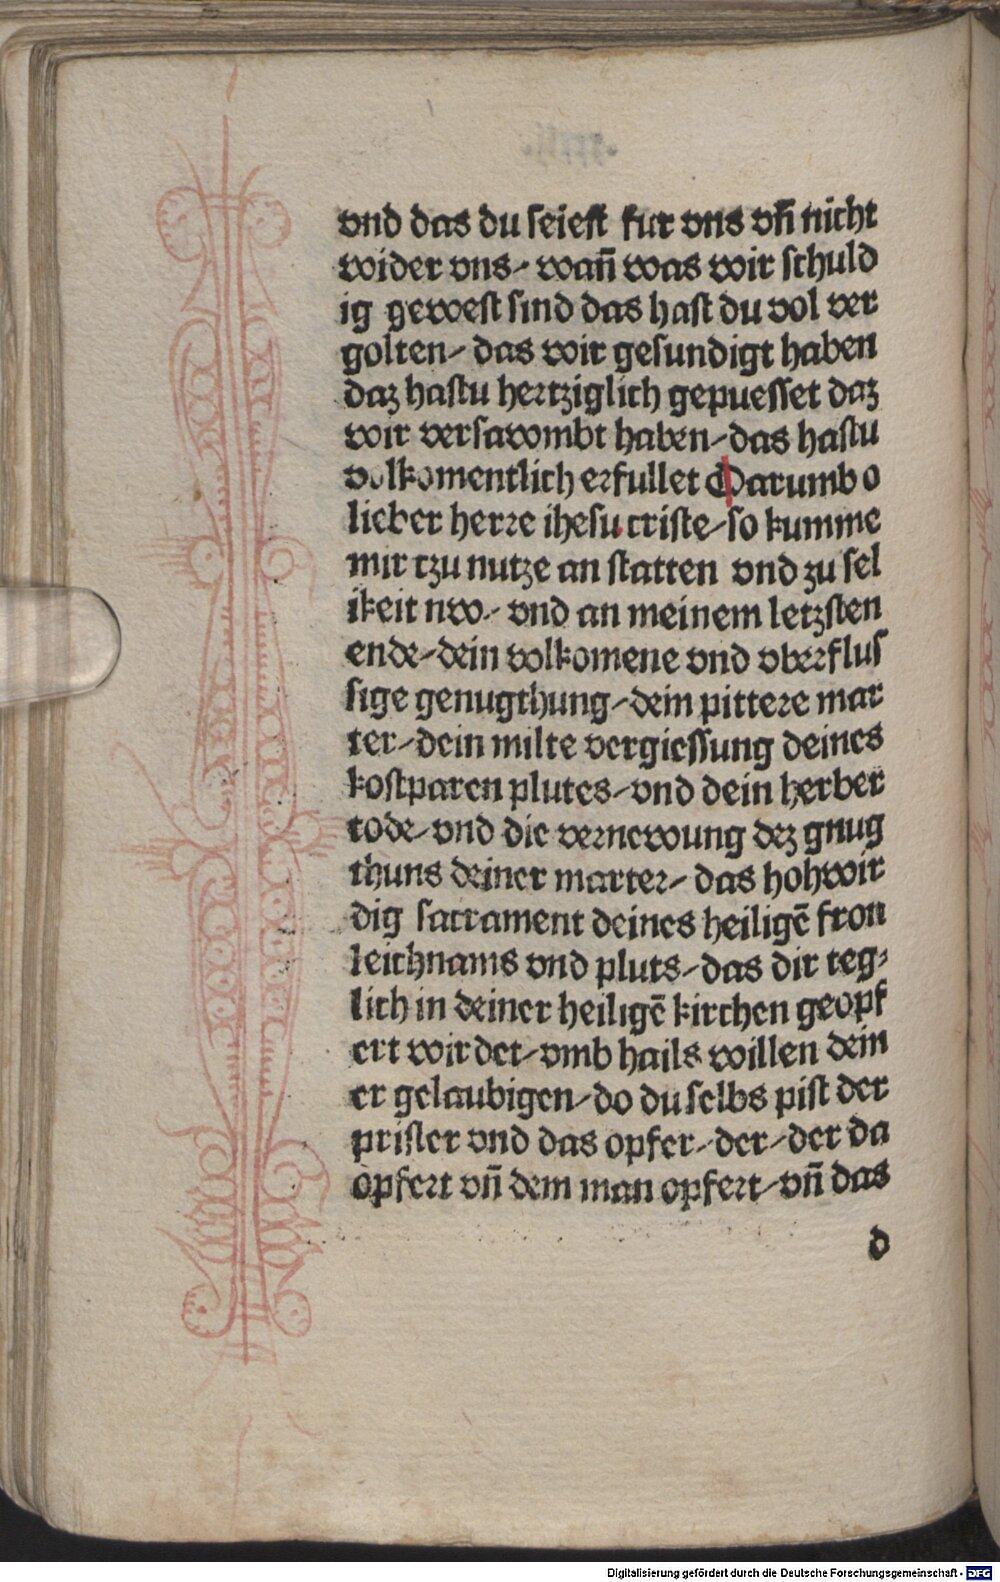 vnd das du seiest fur vns vn̄ nicht
wider vns⸗ wan̄ was wir schuld
ig gewest sind das hast du vol ver
golten⸗ das wir gesundigt haben
daz hastu hertziglich gepuesset daz
wir versawmbt haben⸗das hastu
volkomentlich erfullet Darumb o
lieber herre ihesu criste⸗so kumme
mir tzu nutze an statten vnd zu sel
ikeit nw⸗ vnd an meinem letzsten
ende⸗dein volkomene vnd vberflus
sige genugthung⸗dein pittere mar
ter⸗dein milte vergiessung deines
kostparen plutes⸗vnd dein herber
tode⸗vnd die vernewung dez gnug
thuns deiner marter⸗ das hohwir
dig sacrament deines heiligē fron
leichnams vnd pluts⸗das dir teg⸗
lich in deiner heiligē kirchen geopf
ert wirdet⸗vmb hails willen dein
er gelaubigen⸗do du selbs pist der
prister vnd das opfer⸗der⸗der da
opfert vn̄ dem man opfert⸗vn̄ das
d
Digitalisierung gefördert durch die Deutsche Forschungsgemeinschaft - DFG